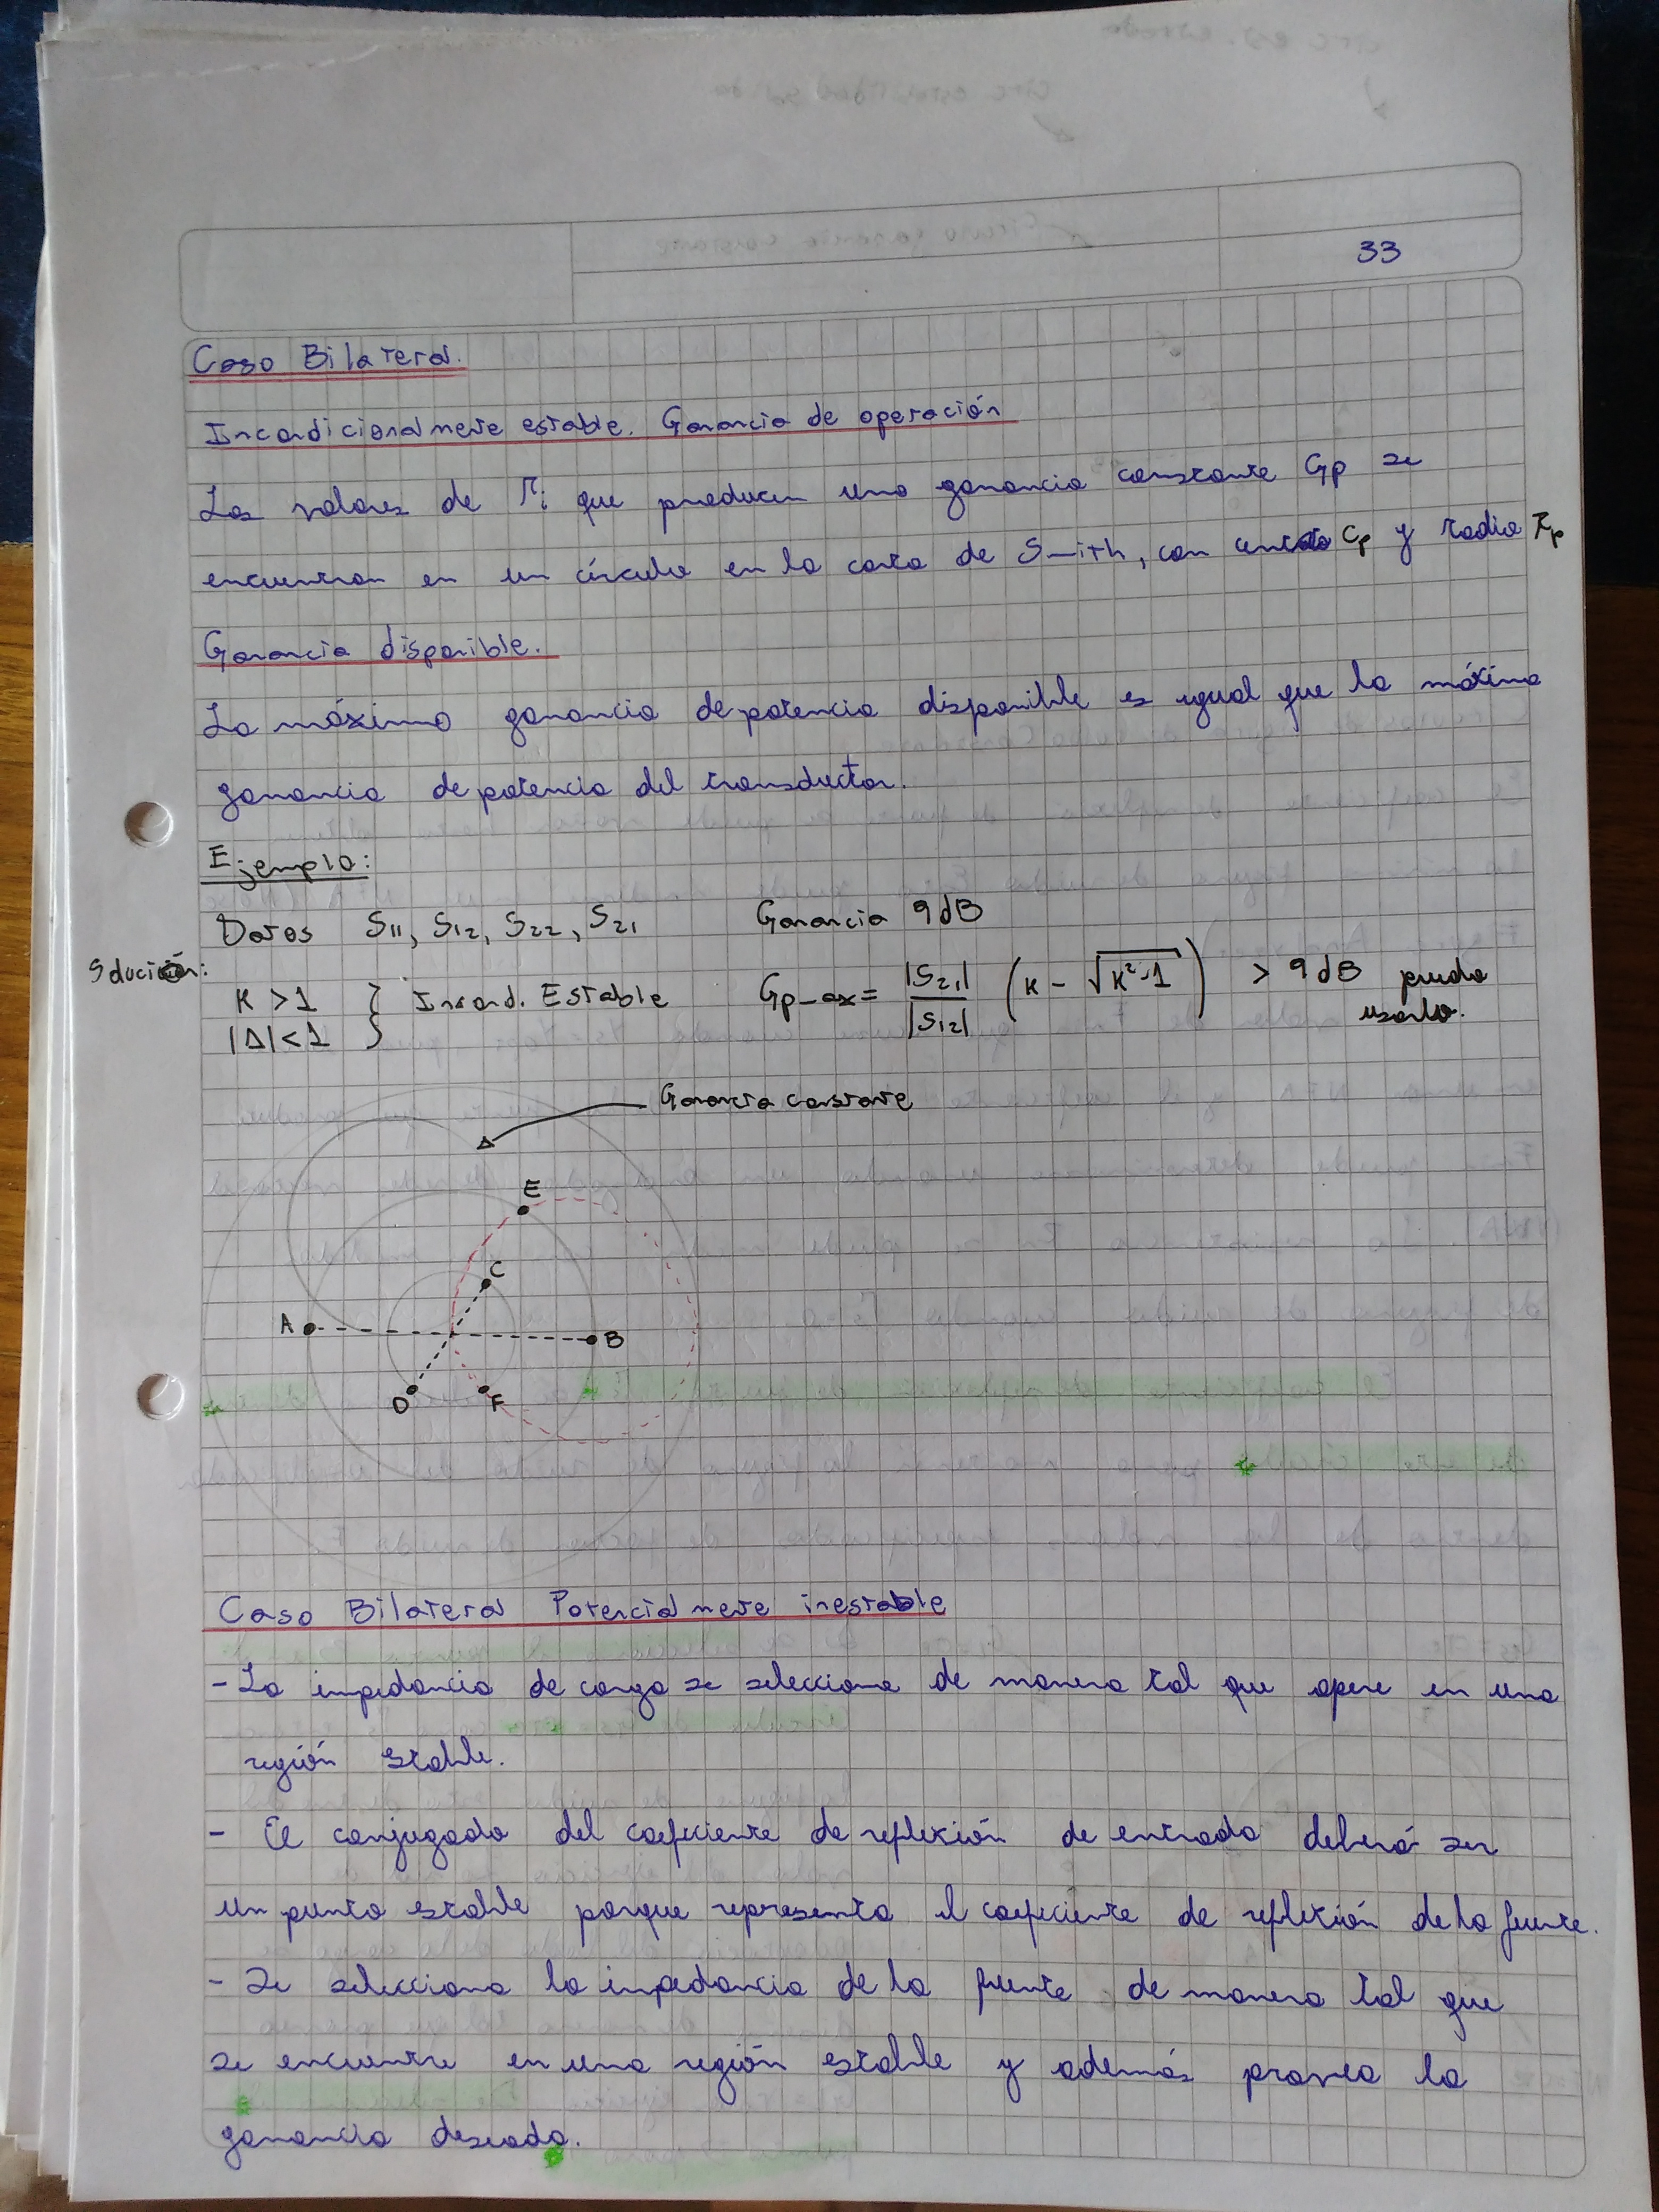 33
Caso Bilateral.
Incondicionalmente estable. Ganancia de operación
Los valores de Γi que producen una ganancia constante Gp se
encuentran en un círculo en la carta de Smith, con centro Cp y radio rp
Ganancia disponible.
La máxima ganancia de potencia disponible es igual que la máxima
ganancia de potencia del transductor.
Ejemplo:
Datos S11, S12, S22, S21 Ganancia 9dB
Solución:
K > 1 } Incond. Estable Gpmax = |S21| / |S12| (K - √(K² - 1)) > 9dB puedo
|Δ| < 1 usarlo.
Ganancia constante
E
C
A B
D F
Caso Bilateral Potencialmente inestable
- La impedancia de carga se selecciona de manera tal que opere en una
región estable.
- El conjugado del coeficiente de reflexión de entrada deberá ser
un punto estable porque representa el coeficiente de reflexión de la fuente.
- Se selecciona la impedancia de la fuente de manera tal que
se encuentre en una región estable y además provea la
ganancia deseada.